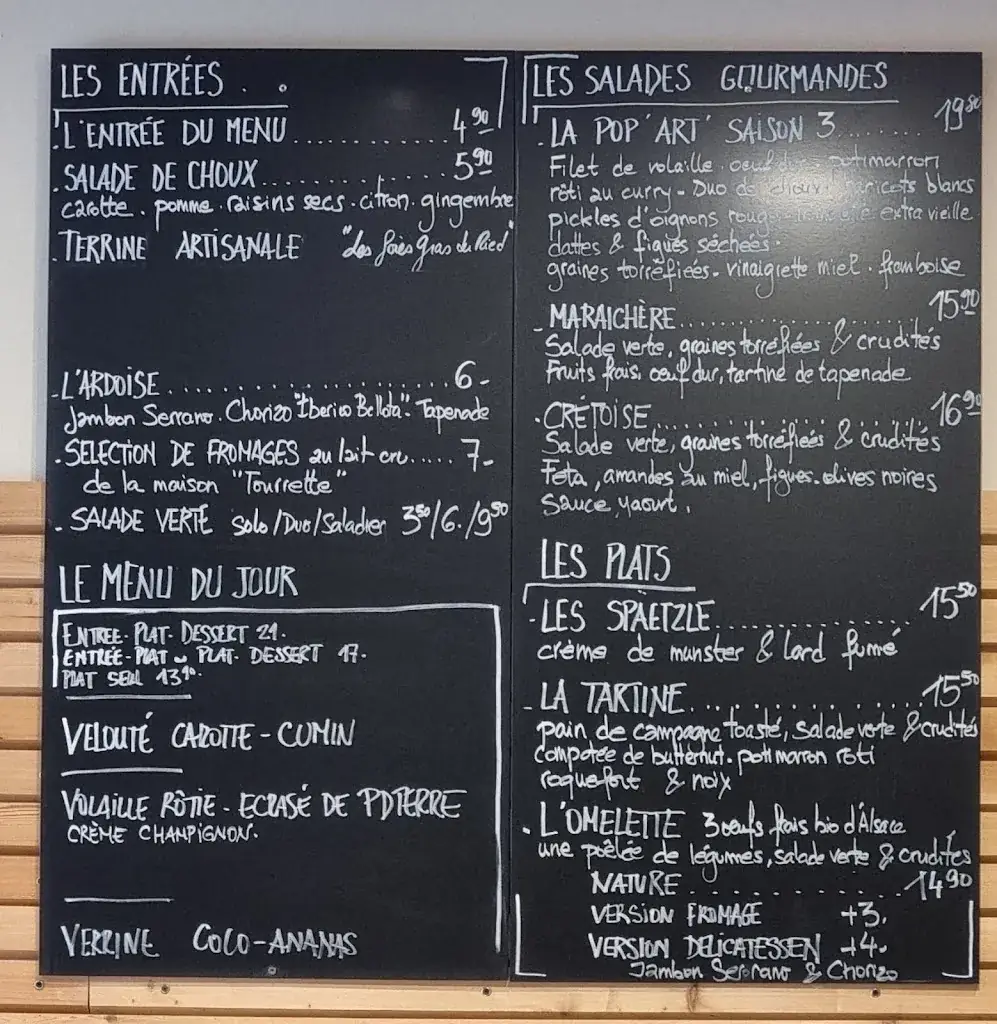 LES ENTRÉES . .
. L'ENTRÉE DU MENU ............ 4,90
. SALADE DE CHOUX ............ 5,90
carotte . pomme . raisins secs . citron . gingembre
. TERRINE ARTISANALE "des foies Gras du Ried"
. L'ARDOISE .................... 6-
Jambon Serrano . Chorizo "Iberico Bellota" . Tapenade
. SELECTION DE FROMAGES au lait cru ..... 7-
de la maison "Tourrette"
. SALADE VERTE Solo/Duo/Saladier 3,50/6./9,50
LE MENU DU JOUR
ENTREE - PLAT - DESSERT 21.
ENTRÉE - PLAT ou PLAT - DESSERT 17.
PLAT SEUL 13,90.
VELOUTÉ CAROTTE - CUMIN
VOLAILLE RÔTIE - ECRASÉ DE PDTERRE
CRÈME CHAMPIGNON.
VERRINE COCO-ANANAS
LES SALADES GOURMANDES
. LA POP'ART' SAISON 3 ....... 19,80
Filet de volaille . oeuf potimarron
rôti au curry - Duo de choux . haricots blancs
pickles d'oignons rouges extra vieille
dattes & figues séchées .
graines torréfiées - vinaigrette miel . framboise
- MARAICHÈRE ............ 15,90
Salade verte, graines torréfiées & crudités
Fruits frais, oeuf dur, tartine de tapenade
. CRÉTOISE ............ 16,90
Salade verte, graines torréfieés & crudités
Feta, amandes au miel, figues - olives noires
Sauce yaourt.
LES PLATS
- LES SPAETZLE ............ 15,50
crème de munster & lard fumé
- LA TARTINE ............ 15,50
pain de campagne toasté, Salade verte & crudités
compotée de butternut . potimarron rôti
roquefort & noix
. L'OMELETTE 3 oeufs frais bio d'Alsace
une poêlée de légumes, salade verte & crudités
NATURE ............ 14,90
VERSION FROMAGE +3.
VERSION DELICATESSEN +4.
Jambon Serrano & Chorizo